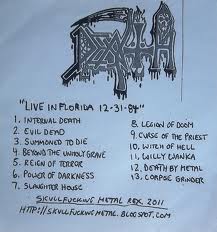 DEATH
"LIVE IN FLORIDA 12-31-84"
1. INTERNAL DEATH
2. EVIL DEAD
3. SUMMONED TO DIE
4. BEYOND THE UNHOLY GRAVE
5. REIGN OF TERROR
6. POWER OF DARKNESS
7. SLAUGHTER HOUSE
8. LEGION OF DOOM
9. CURSE OF THE PRIEST
10. WITCH OF HELL
11. WILLY WANKA
12. DEATH BY METAL
13. CORPSE GRINDER
SKULLFUCKING METAL REX 2011
HTTP://SKULLFUCKINGMETAL.BLOGSPOT.COM